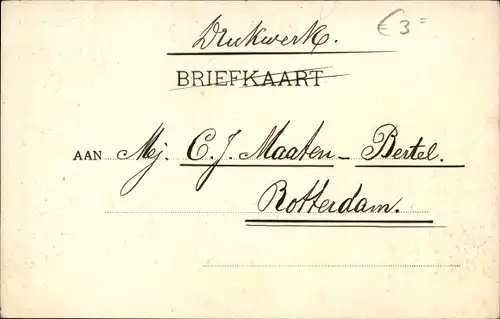 Drukwerk.
€ 3=
BRIEFKAART
AAN Mej. C. J. Maaten - Bertel.
Rotterdam.